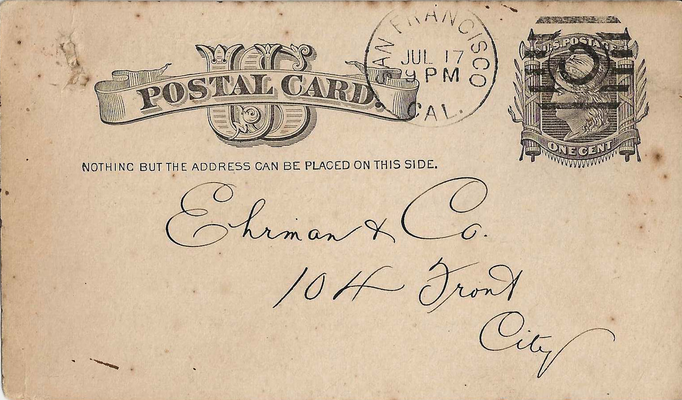 US
POSTAL CARD.
SAN FRANCISCO
JUL 17
9 PM
CAL.
U.S. POSTAGE
ONE CENT
NOTHING BUT THE ADDRESS CAN BE PLACED ON THIS SIDE.
Ehrman & Co.
104 Front
City